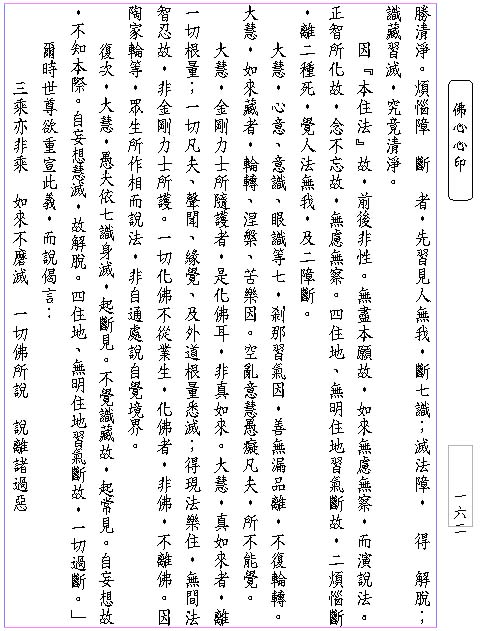 佛心心印
勝清淨。煩惱障 斷 者，先習見人無我，斷七識；滅法障， 得 解脫；
識藏習滅，究竟清淨。
因『本住法』故，前後非性。無盡本願故，如來無慮無察，而演說法。
正智所化故，念不忘故，無慮無察。四住地、無明住地習氣斷故，二煩惱斷
，離二種死，覺人法無我，及二障斷。
大慧，心意、意識、眼識等七，剎那習氣因，善無漏品離，不復輪轉。
大慧，如來藏者，輪轉、涅槃、苦樂因。空亂意慧愚癡凡夫，所不能覺。
大慧，金剛力士所隨護者，是化佛耳，非真如來。大慧，真如來者，離
一切根量；一切凡夫、聲聞、緣覺、及外道根量悉滅；得現法樂住，無間法
智忍故，非金剛力士所護。一切化佛不從業生，化佛者，非佛，不離佛。因
陶家輪等，眾生所作相而說法，非自通處說自覺境界。
復次，大慧，愚夫依七識身滅，起斷見。不覺識藏故，起常見。自妄想故
，不知本際。自妄想慧滅，故解脫。四住地、無明住地習氣斷故，一切過斷。」
爾時世尊欲重宣此義，而說偈言：
三乘亦非乘 如來不磨滅 一切佛所說 說離諸過惡
一六二